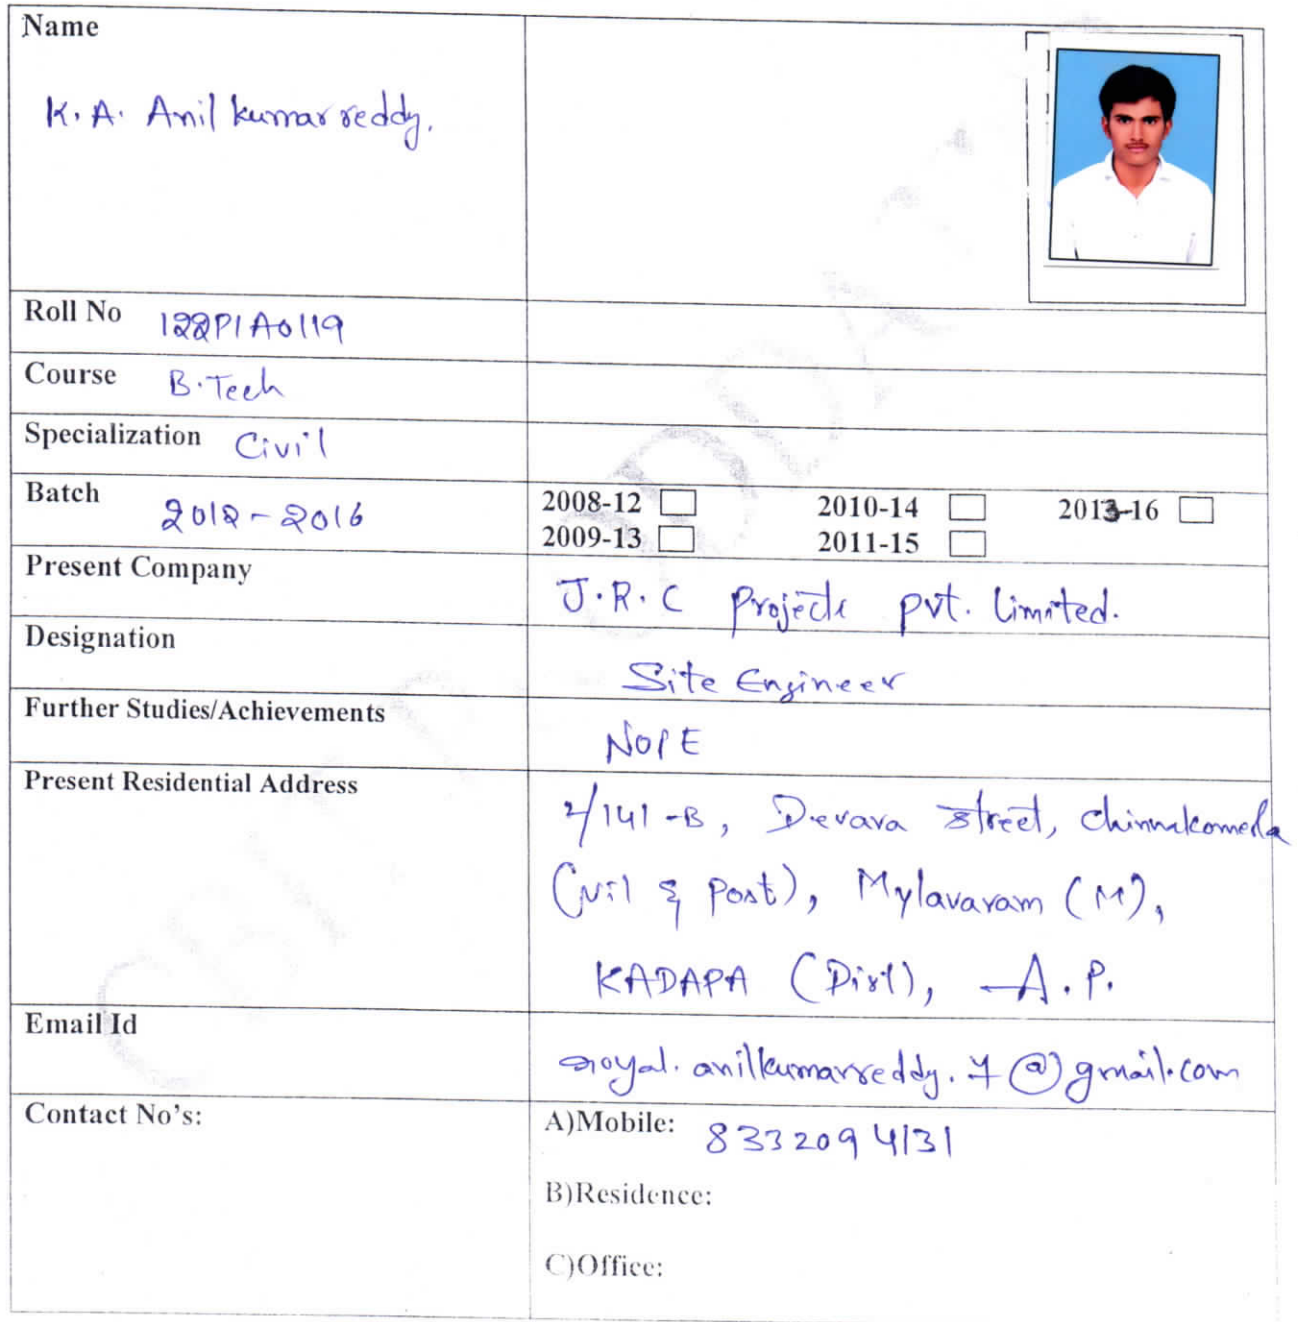 Name
K. A. Anil kumar reddy.
Roll No 122P1A0119
Course B.Tech
Specialization Civil
Batch 2012-2016
2008-12 2010-14 2013-16
2009-13 2011-15
Present Company
J.R.C Projects pvt. Limited.
Designation
Site Engineer
Further Studies/Achievements
NOPE
Present Residential Address
2/141-B, Devara street, chinnakomerla
(vil & post), Mylavaram (M),
KADAPA (Dist), A.P.
Email Id
royal.anilkumarreddy.7@gmail.com
Contact No's:
A)Mobile: 8332094131
B)Residence:
C)Office: